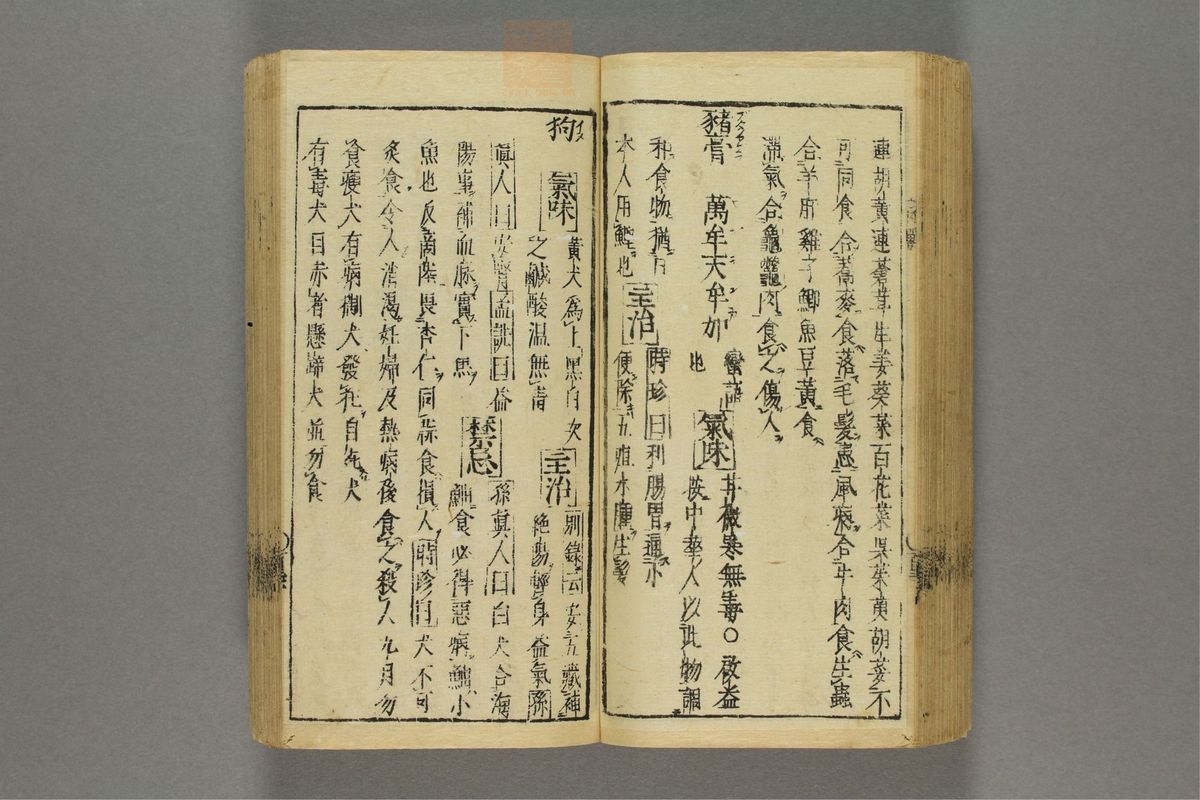 連胡黃連蓄葉生姜葵菜百花菜吳茱萸胡荽不
可同食合蕎麥食落毛髮患風病合牛肉食生蟲
合羊肝雞子鯽魚豆黃食
滯氣合龜鼈肉食之傷人
豬膏 萬牟天牟加 蠻語也 氣味 甘微寒無毒〇啟益
按中華人以此物調
和食物猶日
本人用鰹也 主治 時珍曰利腸胃通小
便除五疸水腫生髮
狗 氣味 黃犬為上黑白次
之鹹酸温無毒 主治 別錄云安五臟補
絶傷輕身益氣孫
真人曰安腎孟詵曰益
陽事補血脉實下焦 禁忌 孫真人曰白犬合海
鮋食必得惡病鮋小
魚也反商陸畏杏仁同蒜食損人時珍曰犬不可
炙食令人消渴妊婦及熱病後食之殺人九月勿
食瘦犬有病猘犬發狂自死犬
有毒犬目赤者懸蹄犬並勿食